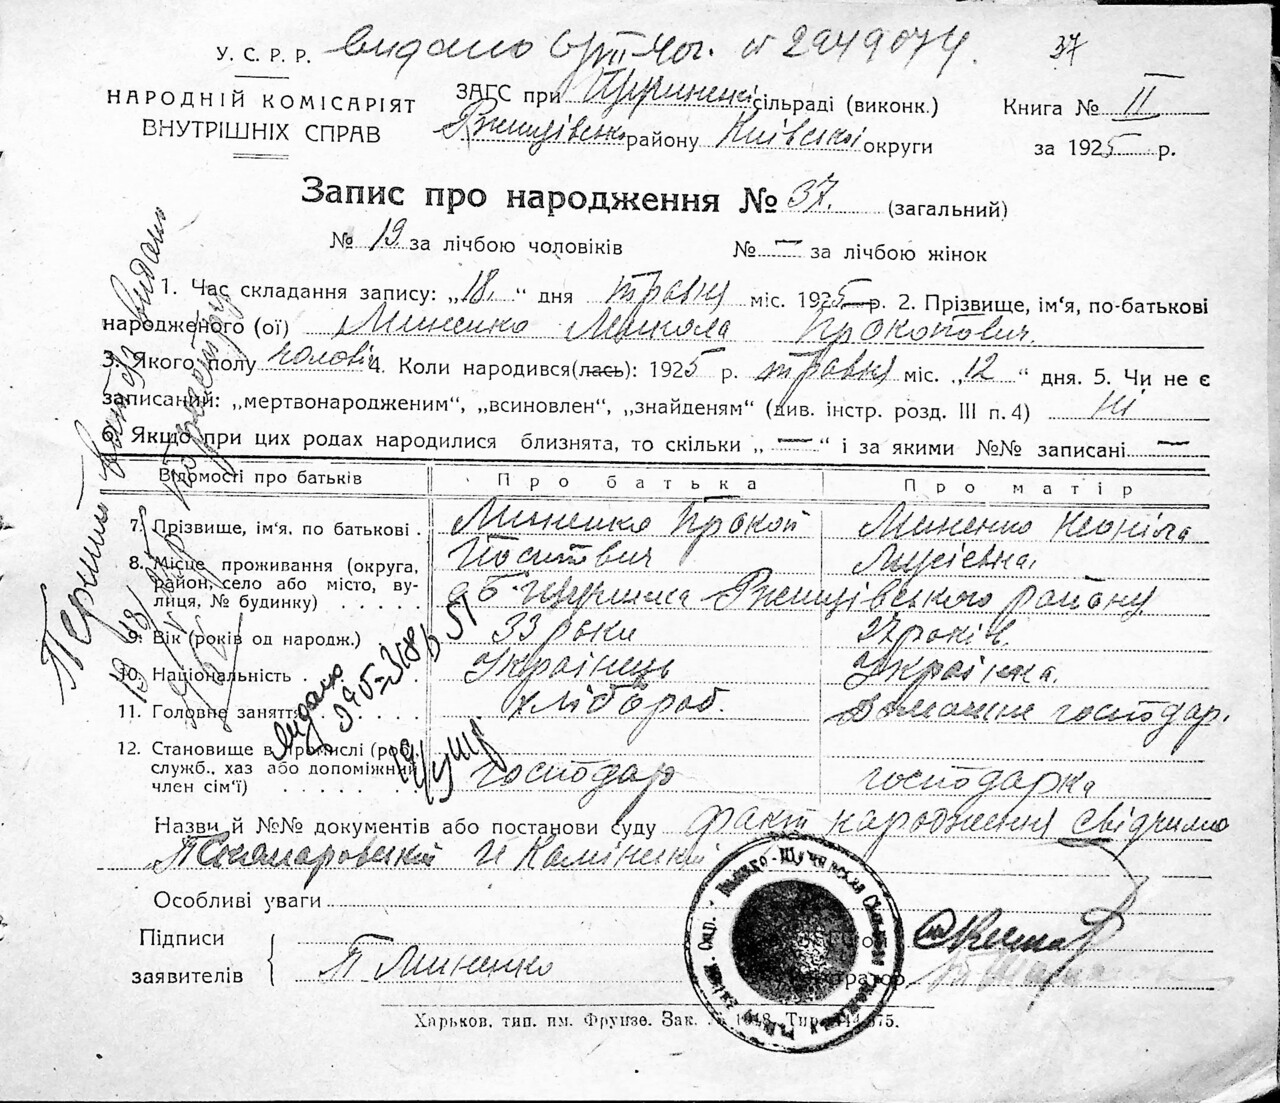 У.С.Р.Р. видано № 2949074. 37
НАРОДНІЙ КОМІСАРІЯТ
ВНУТРІШНІХ СПРАВ
ЗАГС при сільраді (виконк.)
району Київської округи
Книга № II
за 1925 р.
Запис про народження № 37. (загальний)
№ 19 за лічбою чоловіків № — за лічбою жінок
1. Час складання запису: „18." дня травня міс. 1925 р. 2. Прізвище, ім'я, по-батькові
народженого (ої) Миненко Микола Прокопович.
3. Якого полу чолові 4. Коли народився(лась): 1925 р. травня міс. „12" дня. 5. Чи не є
записаний: „мертвонародженим", „всиновлен", „знайденям" (див. інстр. розд. III п. 4) ні
6. Якщо при цих родах народилися близнята, то скільки „—" і за якими №№ записані —
Відомості про батьків Про батька Про матір
7. Прізвище, ім'я, по батькові . Миненко Прокоп Миненко Неоніла
8. Місце проживання (округа, район, село або місто, вулиця, № будинку) . . . . .
Мусіївна.
с Б-Щучинка Ржищівського району
9. Вік (років од народж.) 33 роки 27 років.
10. Національність . Українець Українка.
11. Головне заняття . . . . . . хлібороб. Домашнє господар.
12. Становище в промислі (роб., служб., хаз або допоміжний член сім'ї) . . . . . господар господарка
Назви й №№ документів або постанови суду факт народження свідчимо
Пономаровський и Камінський
Особливі уваги
Підписи
заявителів П Миненко
Харьков. тип. им. Фрунзе. Зак.
Первий
видано
51